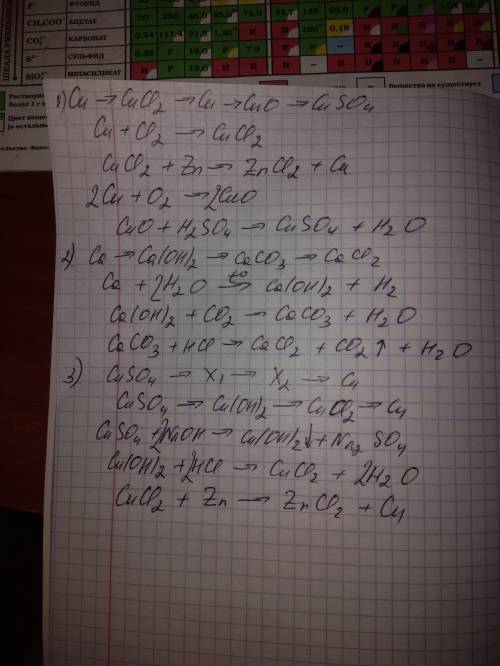 ФТОРИД
CH₃COO⁻ АЦЕТАТ
CO₃²⁻ КАРБОНАТ
S²⁻ СУЛЬФИД
SiO₃²⁻ МЕТАСИЛИКАТ
ШКАЛА
Вещество не существует
1) Cu → CuCl₂ → Cu → CuO → CuSO₄
Cu + Cl₂ → CuCl₂
CuCl₂ + Zn → ZnCl₂ + Cu
2Cu + O₂ → 2CuO
CuO + H₂SO₄ → CuSO₄ + H₂O
2) Ca → Ca(OH)₂ → CaCO₃ → CaCl₂
Ca + 2H₂O →(t°) Ca(OH)₂ + H₂
Ca(OH)₂ + CO₂ → CaCO₃ + H₂O
CaCO₃ + HCl → CaCl₂ + CO₂↑ + H₂O
3) CuSO₄ → X₁ → X₂ → Cu
CuSO₄ → Cu(OH)₂ → CuCl₂ → Cu
CuSO₄ + 2NaOH → Cu(OH)₂↓ + Na₂SO₄
Cu(OH)₂ + 2HCl → CuCl₂ + 2H₂O
CuCl₂ + Zn → ZnCl₂ + Cu